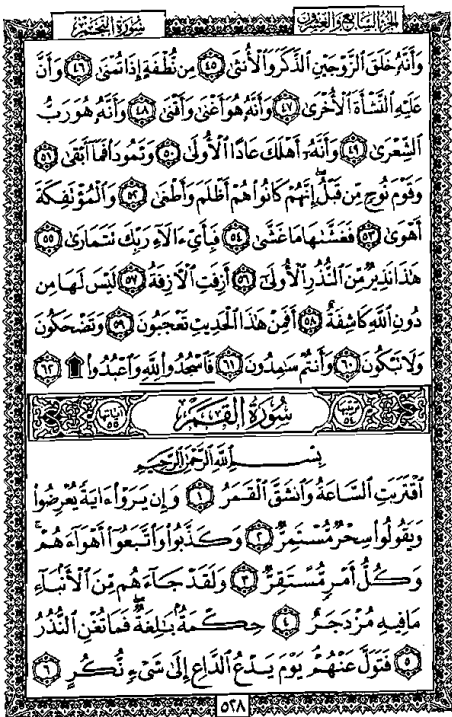 الجزء السابع والعشرون سورة النجم
وَأَنَّهُۥ خَلَقَ ٱلزَّوْجَيْنِ ٱلذَّكَرَ وَٱلْأُنثَىٰ ٤٥ مِن نُّطْفَةٍ إِذَا تُمْنَىٰ ٤٦ وَأَنَّ
عَلَيْهِ ٱلنَّشْأَةَ ٱلْأُخْرَىٰ ٤٧ وَأَنَّهُۥ هُوَ أَغْنَىٰ وَأَقْنَىٰ ٤٨ وَأَنَّهُۥ هُوَ رَبُّ
ٱلشِّعْرَىٰ ٤٩ وَأَنَّهُۥٓ أَهْلَكَ عَادًا ٱلْأُولَىٰ ٥٠ وَثَمُودَا۟ فَمَآ أَبْقَىٰ ٥١
وَقَوْمَ نُوحٍ مِّن قَبْلُ ۖ إِنَّهُمْ كَانُوا۟ هُمْ أَظْلَمَ وَأَطْغَىٰ ٥٢ وَٱلْمُؤْتَفِكَةَ
أَهْوَىٰ ٥٣ فَغَشَّىٰهَا مَا غَشَّىٰ ٥٤ فَبِأَىِّ ءَالَآءِ رَبِّكَ تَتَمَارَىٰ ٥٥
هَـٰذَا نَذِيرٌ مِّنَ ٱلنُّذُرِ ٱلْأُولَىٰٓ ٥٦ أَزِفَتِ ٱلْـَٔازِفَةُ ٥٧ لَيْسَ لَهَا مِن
دُونِ ٱللَّهِ كَاشِفَةٌ ٥٨ أَفَمِنْ هَـٰذَا ٱلْحَدِيثِ تَعْجَبُونَ ٥٩ وَتَضْحَكُونَ
وَلَا تَبْكُونَ ٦٠ وَأَنتُمْ سَـٰمِدُونَ ٦١ فَٱسْجُدُوا۟ لِلَّهِ وَٱعْبُدُوا۟ ۩ ٦٢
ترتيبها ٥٤ سورة القمر آياتها ٥٥
بِسْمِ ٱللَّهِ ٱلرَّحْمَـٰنِ ٱلرَّحِيمِ
ٱقْتَرَبَتِ ٱلسَّاعَةُ وَٱنشَقَّ ٱلْقَمَرُ ١ وَإِن يَرَوْا۟ ءَايَةً يُعْرِضُوا۟
وَيَقُولُوا۟ سِحْرٌ مُّسْتَمِرٌّ ٢ وَكَذَّبُوا۟ وَٱتَّبَعُوٓا۟ أَهْوَآءَهُمْ ۚ
وَكُلُّ أَمْرٍ مُّسْتَقِرٌّ ٣ وَلَقَدْ جَآءَهُم مِّنَ ٱلْأَنۢبَآءِ
مَا فِيهِ مُزْدَجَرٌ ٤ حِكْمَةٌۢ بَـٰلِغَةٌ ۖ فَمَا تُغْنِ ٱلنُّذُرُ
٥ فَتَوَلَّ عَنْهُمْ ۘ يَوْمَ يَدْعُ ٱلدَّاعِ إِلَىٰ شَىْءٍ نُّكُرٍ ٦
٥٢٨